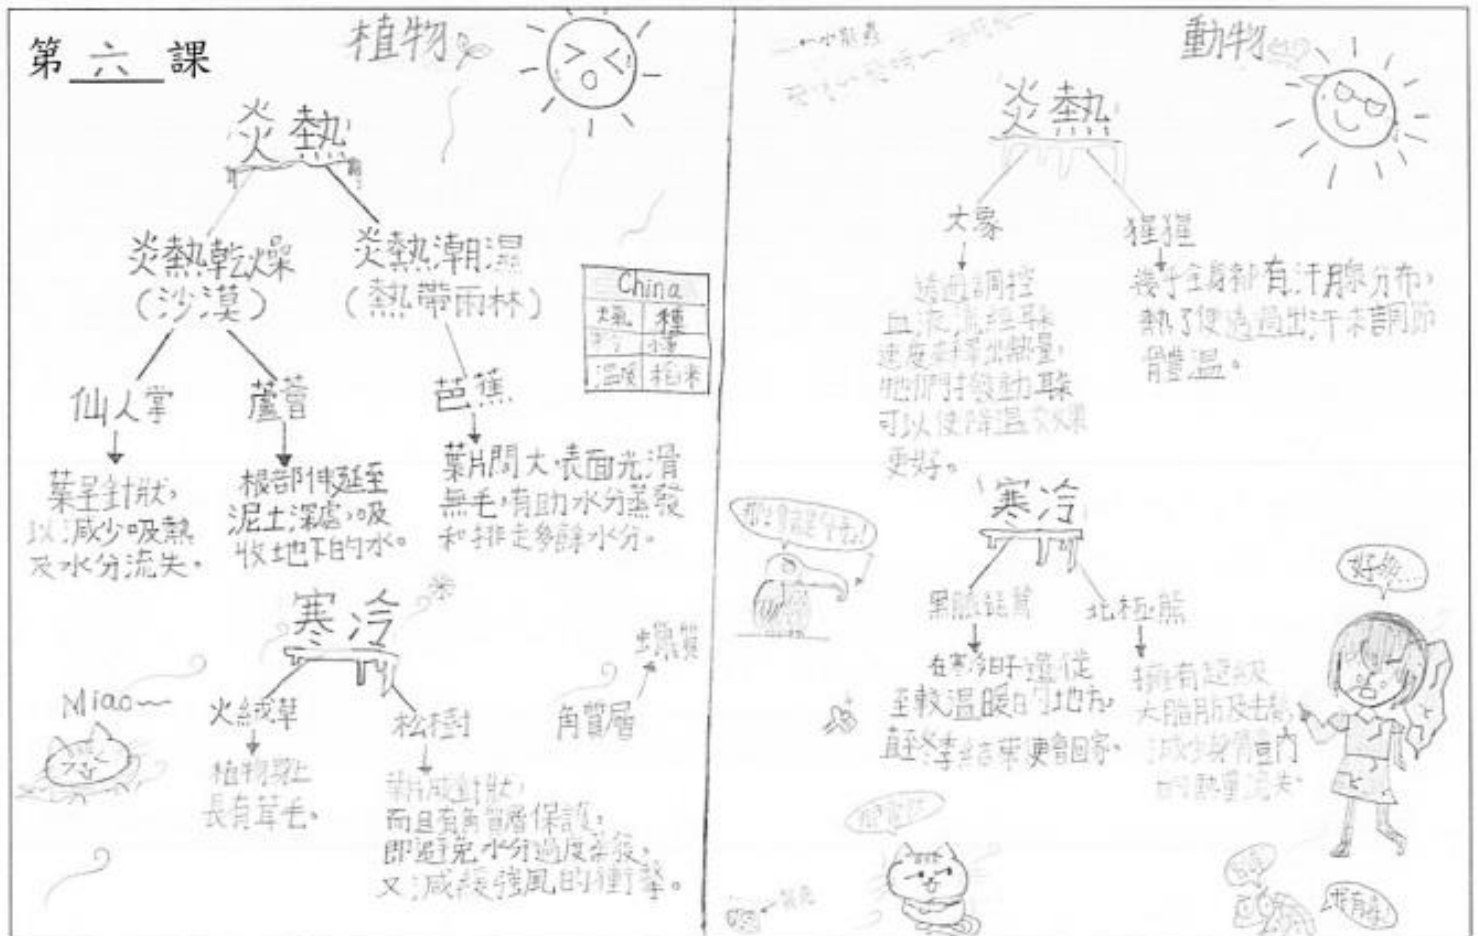 第六課
植物
炎熱
炎熱乾燥
(沙漠)
炎熱潮濕
(熱帶雨林)
仙人掌
蘆薈
芭蕉
葉呈針狀,
以減少吸熱
及水分流失。
根部伸延至
泥土深處,吸
收地下的水。
葉片闊大,表面光滑
無毛,有助水分蒸發
和排走多餘水分。
China
種
寒冷
Miao
火絨草
松樹
角質層
蠟質
植物身上
長有茸毛。
葉片成針狀,
而且有角質層保護,
即避免水分過度蒸發,
又減緩強風的衝擊。
動物
炎熱
大象
猩猩
透過調控
血液流經耳朵
速度來釋出熱量,
牠們撥動耳朵
可以使降溫效果
更好。
幾乎全身都有汗腺分布,
熱了便透過出汗來調節
體溫。
寒冷
黑臉琵鷺
北極熊
在寒冷日子遷徙
至較溫暖的地方,
直至冬季結束便會回家。
擁有超級
大脂肪及
減少身體內
的熱量流失。
好多...